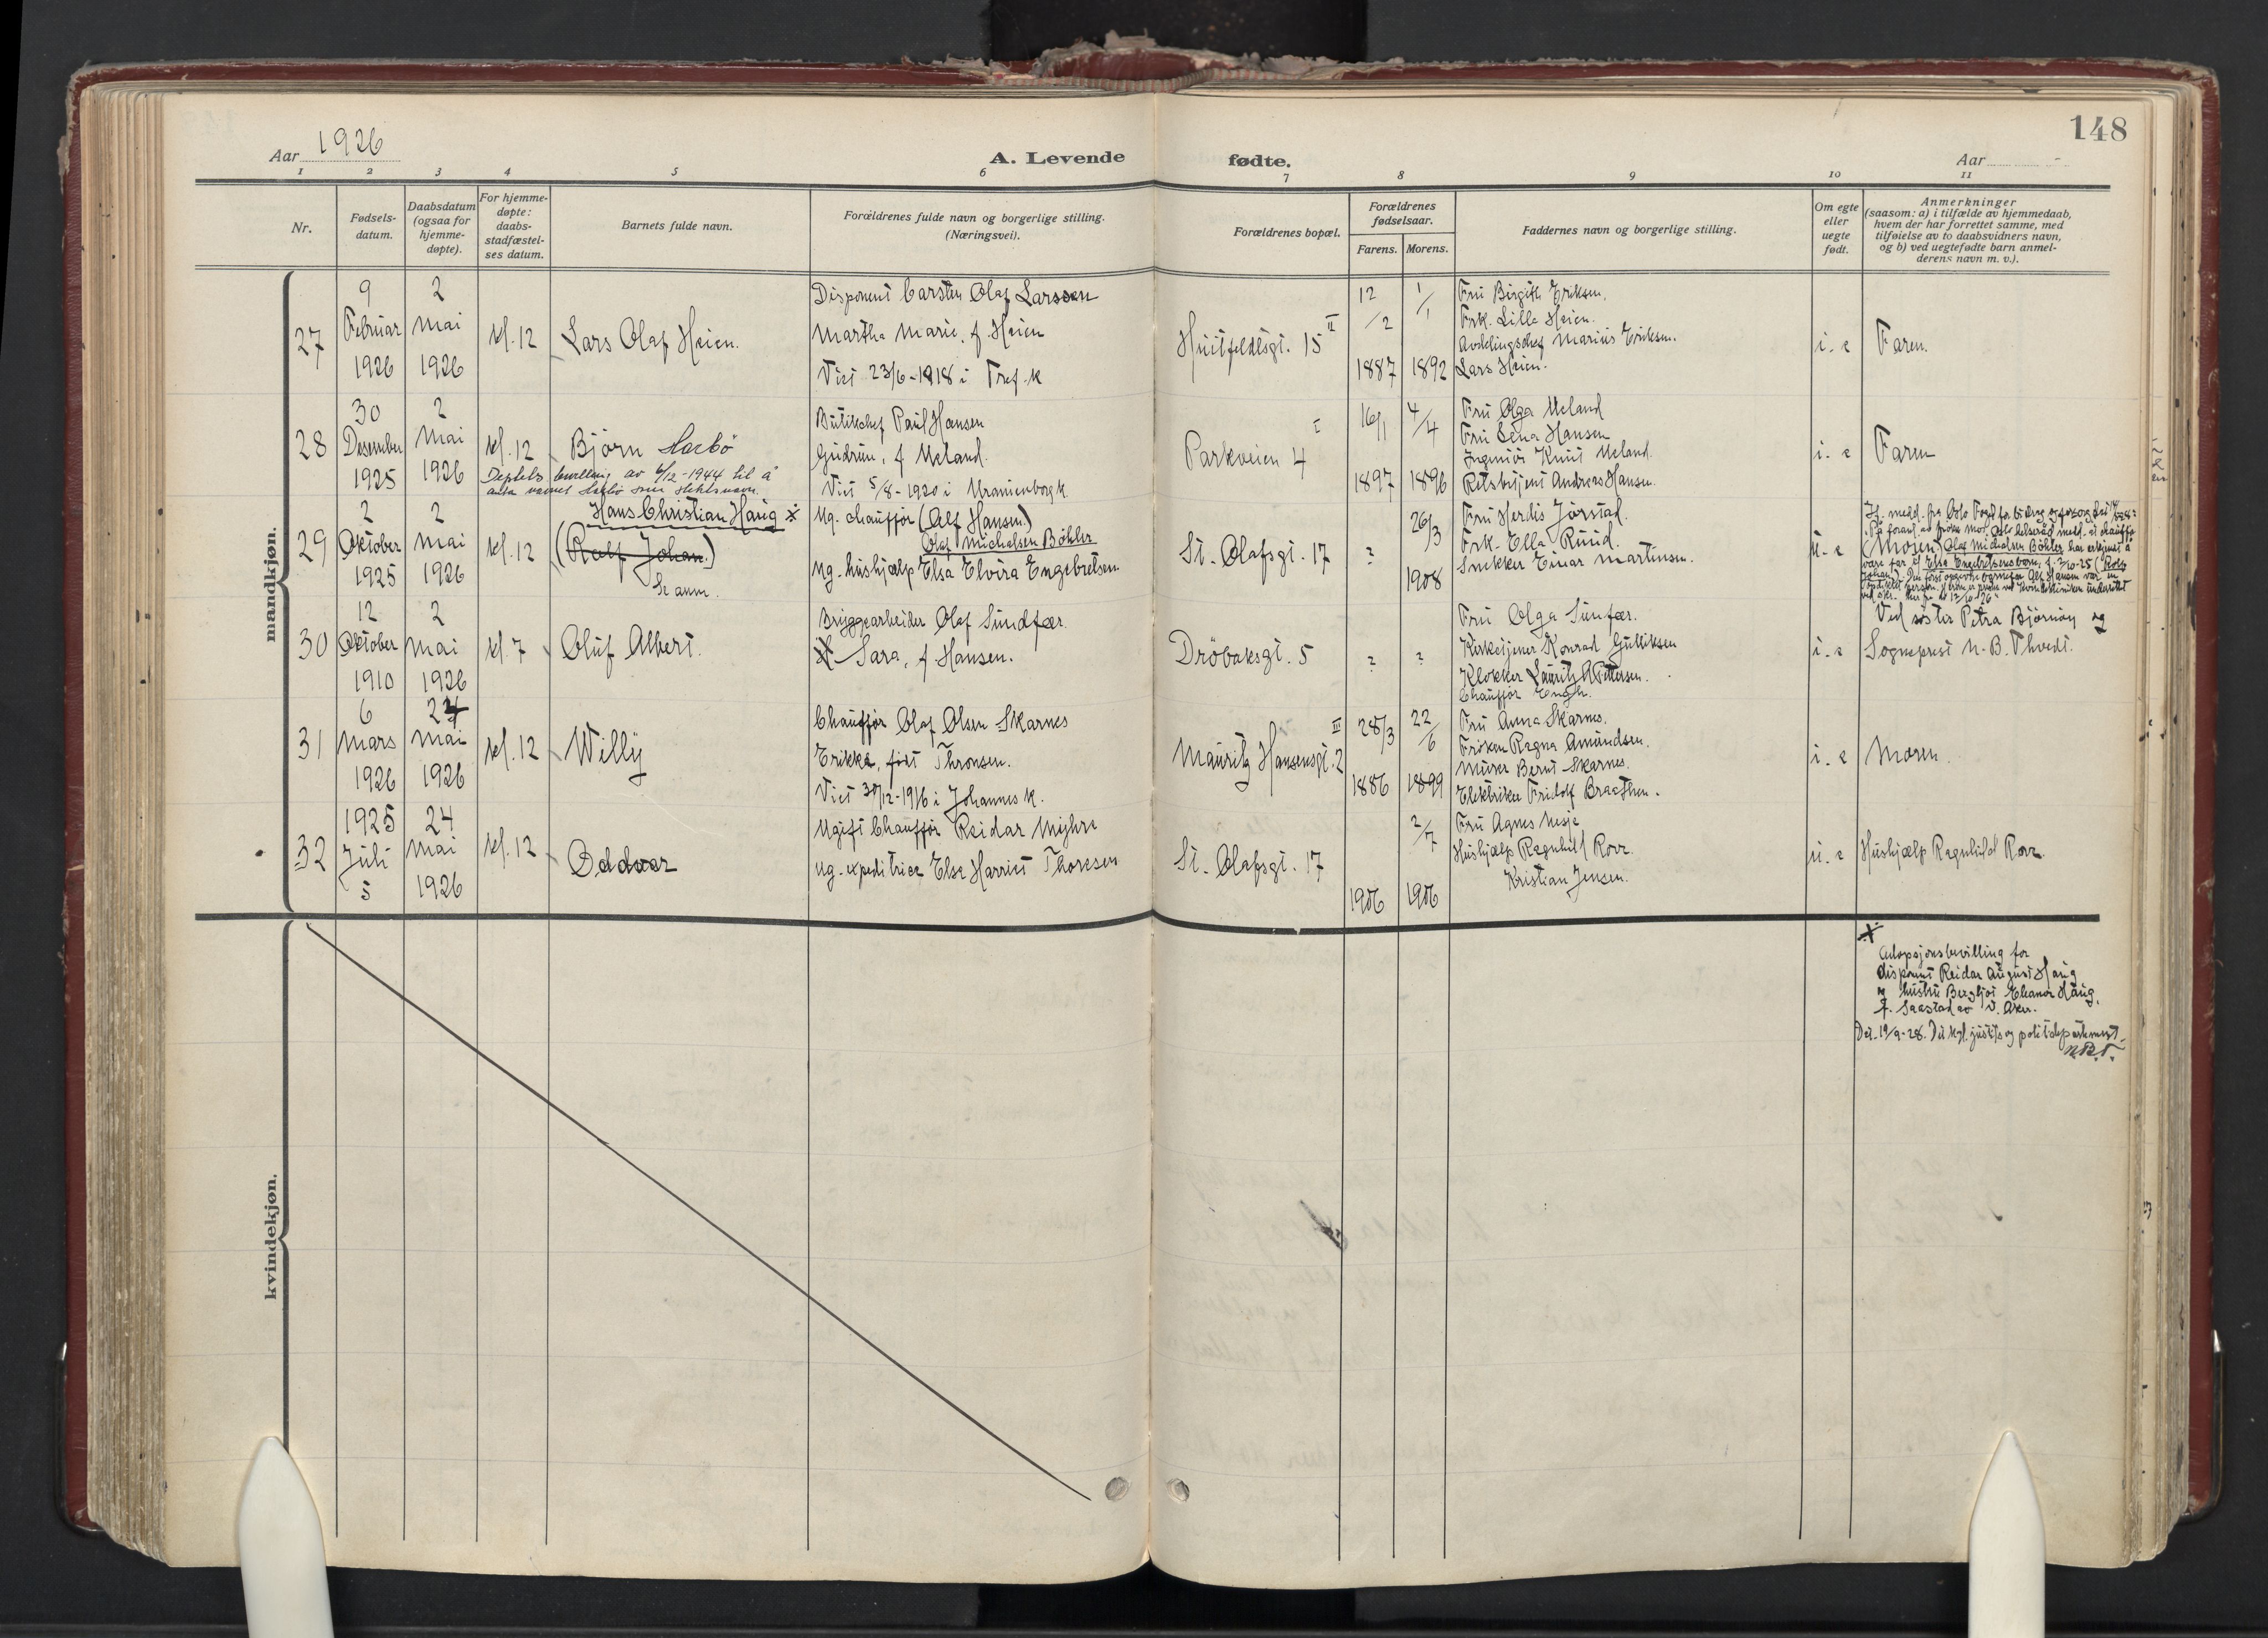 Aar 1926
A. Levende fødte.
Aar
148
1 2 3 4 5 6 7 8 9 10 11
Nr.
Fødsels-
datum.
Daabsdatum
(ogsaa for
hjemme-
døpte).
For hjemme-
døpte:
daabs-
stadfæstel-
ses datum.
Barnets fulde navn.
Forældrenes fulde navn og borgerlige stilling.
(Næringsvei).
Forældrenes bopæl.
Forældrenes
fødselsaar.
Farens. Morens.
Faddernes navn og borgerlige stilling.
Om egte
eller
uegte
født.
Anmerkninger
(saasom: a) i tilfælde av hjemmedaab,
hvem der har forrettet samme, med
tilføielse av to daabsvidners navn,
og b) ved uegtefødte barn anmel-
derens navn m. v.).
mandkjøn.
27
9
Februar
1926
2
Mai
1926
kl. 12
Lars Olaf Heien.
Disponent Carsten Olaf Larssen
Martha Marie, f. Heien
Viet 23/6-1918 i Tref. k
Huitfeldtsgt. 15 II
12
/2
1887
1/
1
1892
Fru Birgith Eriksen.
Frk. Lilla Heien.
Avdelingschef Marius Eriksen.
Lars Heien.
i. e
Faren.
28
30
Desember
1925
2
Mai
1926
kl. 12
Björn Harbö
Deptets bevilling av 6/12-1944 til å
anta navnet Harbö som slektsnavn.
Butikchef Paul Hansen
Gudrun, f Meland.
Viet 5/8-1920 i Uranienborg k.
Parkveien 4 I
16/1
1897
4/4
1896
Fru Olga Meland
Fru Lena Hansen
Ingeniör Knut Meland.
Retsbetjent Andreas Hansen.
i. e
Faren
29
2
Oktober
1925
2
Mai
1926
kl. 12
Hans Christian Haug X
(Rolf Johan.)
Ug. chaufför (Alf Hansen.)
Olaf Michalsen Böhler
Ug. hushjælp Elsa Elvira Engebretsen.
St. Olafsgt. 17
?
26/3
1908
Fru Herdis Jörstad.
Frk. Ella Ruud.
Snekker Einar Martinsen.
u. e
(Moren)
Olaf Michalsen Böhler har erkjent å
være far til Elsa Engebretsens barn, f. 2/10-25 (Rolf
Johan).
30
12
Oktober
1910
2
Mai
1926
kl. 7
Oluf Albert.
Bryggearbeider Olaf Sundfær.
Sara, f. Hansen.
Dröbaksgt. 5
?
?
Fru Olga Sunfær.
Kirketjener Konrad Gulliksen
Klokker Lauritz A Pettersen.
Chauffør Engh.
i. e
Ved söster Petra Björnöy og
Sogneprest N. B. Thvedt.
31
6
Mars
1926
24
Mai
1926
kl. 12
Willy
Chauffør Olaf Olsen Skarnes
Erikka, født Thronsen.
Viet 30/12-1916 i Johannes k.
Mauritz Hansensgt. 2 III
28/3
1886
22/6
1899
Fru Anna Skarnes.
Fröken Ragna Amundsen.
Murer Bernt Skarnes.
Elektriker Fridolf Braathen.
i. e
Moren.
32
1925
Juli
5
24
Mai
1926
kl. 12
Oddvar
Ugift Chauffør Reidar Myhre
Ug. expeditrice Elsa Harriet Thoresen
St. Olafsgt. 17
1906
2/7
1906
Fru Agnes Nesje
Hushjælp Ragnhild Rorr.
Kristian Jensen.
u. e
Hushjælp Ragnhild Rorr.
kvindekjøn.
X
Adopsjonsbevilling for
disponent Reidar August Haug
og hustru Bergljot Eleanor Haug,
f. Saastad av V. Aker.
Dat. 19/9-28. Det kgl. justits og politidepartement.
N.B.T.